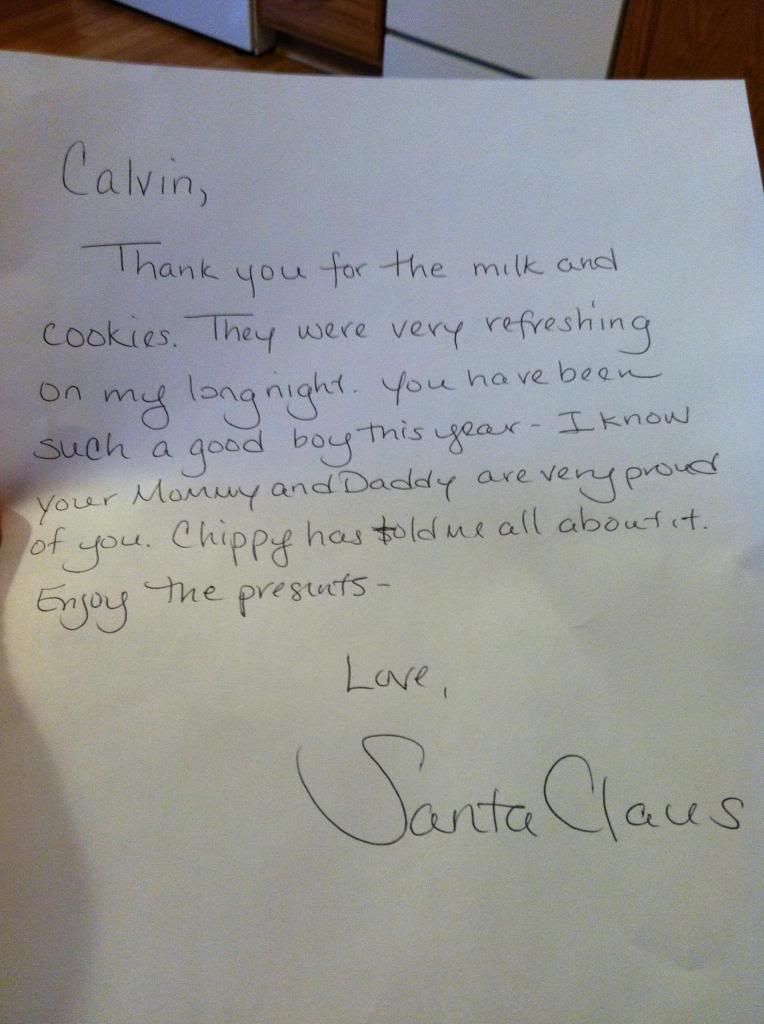 Calvin,
Thank you for the milk and
cookies. They were very refreshing
on my long night. You have been
such a good boy this year - I know
your Mommy and Daddy are very proud
of you. Chippy has told me all about it.
Enjoy the presents -
Love,
Santa Claus